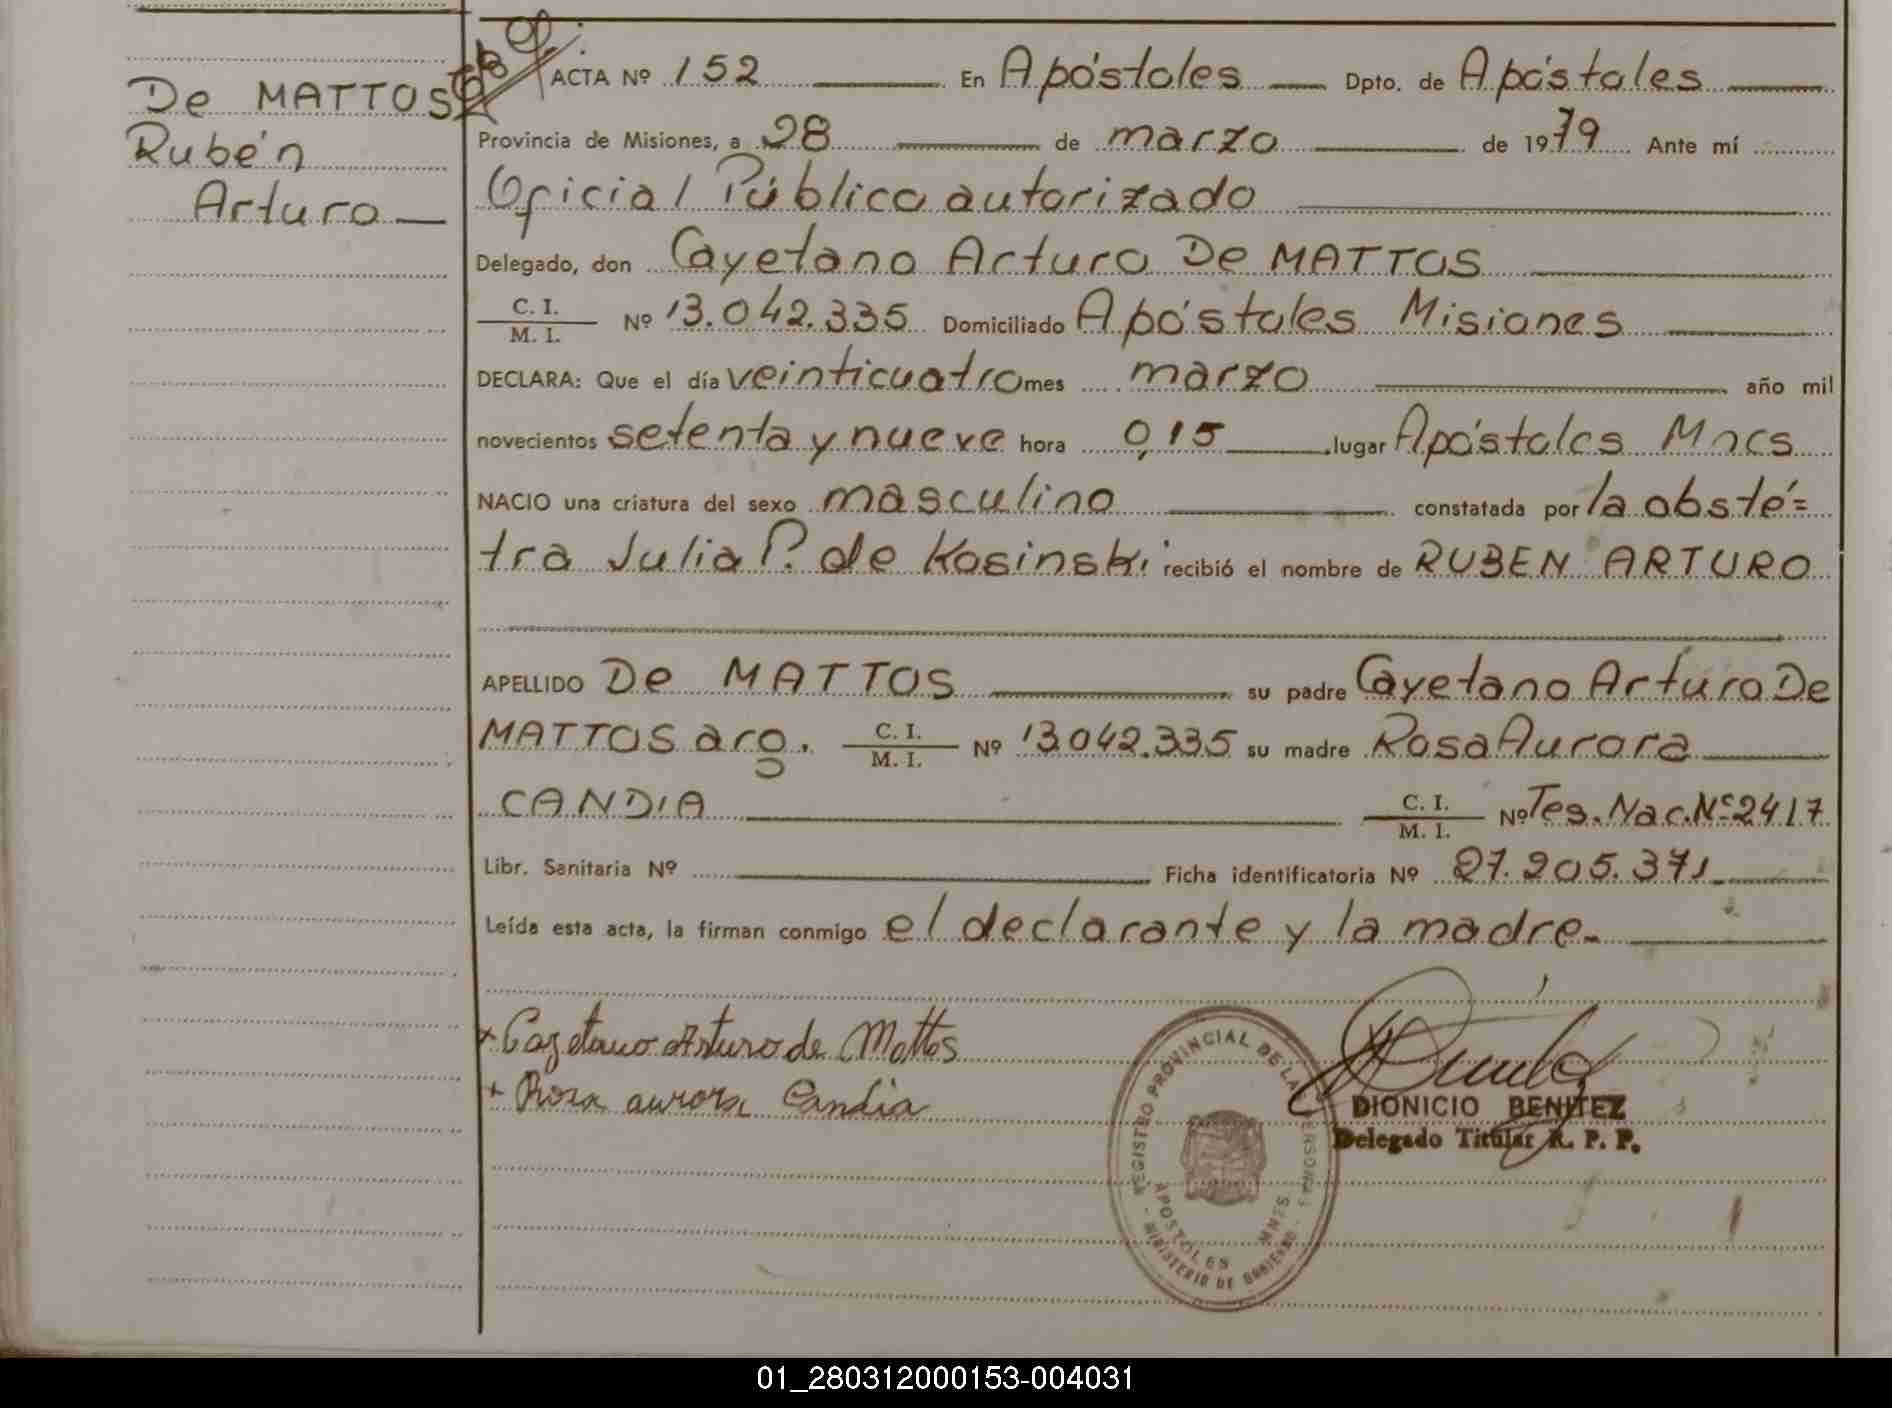 De MATTOS
Rubén
Arturo
ACTA Nº 152 En Apóstoles Dpto. de Apóstoles
Provincia de Misiones, a 28 de marzo de 1979 Ante mí
Oficial Público autorizado
Delegado, don Cayetano Arturo De MATTOS
C. I.
M. I. Nº 13.042.335 Domiciliado Apóstoles Misiones
DECLARA: Que el día veinticuatro mes marzo año mil
novecientos setenta y nueve hora 0,15 lugar Apóstoles Mnes
NACIO una criatura del sexo masculino constatada por la obsté=
tra Julia P. de Kosinski recibió el nombre de RUBEN ARTURO
APELLIDO De MATTOS su padre Cayetano Arturo De
MATTOS arg. C. I. M. I. Nº 13.042.335 su madre Rosa Aurora
CANDIA C. I. M. I. Nº Tes. Nac. Nº 2417
Libr. Sanitaria Nº Ficha identificatoria Nº 27.205.371
Leída esta acta, la firman conmigo el declarante y la madre.
+ Cayetano Arturo de Mattos
+ Rosa aurora Candia
REGISTRO PROVINCIAL DE LAS PERSONAS
APOSTOLES MNES
- MINISTERIO DE GOBIERNO -
DIONICIO BENITEZ
Delegado Titular R. P. P.
01_280312000153-004031